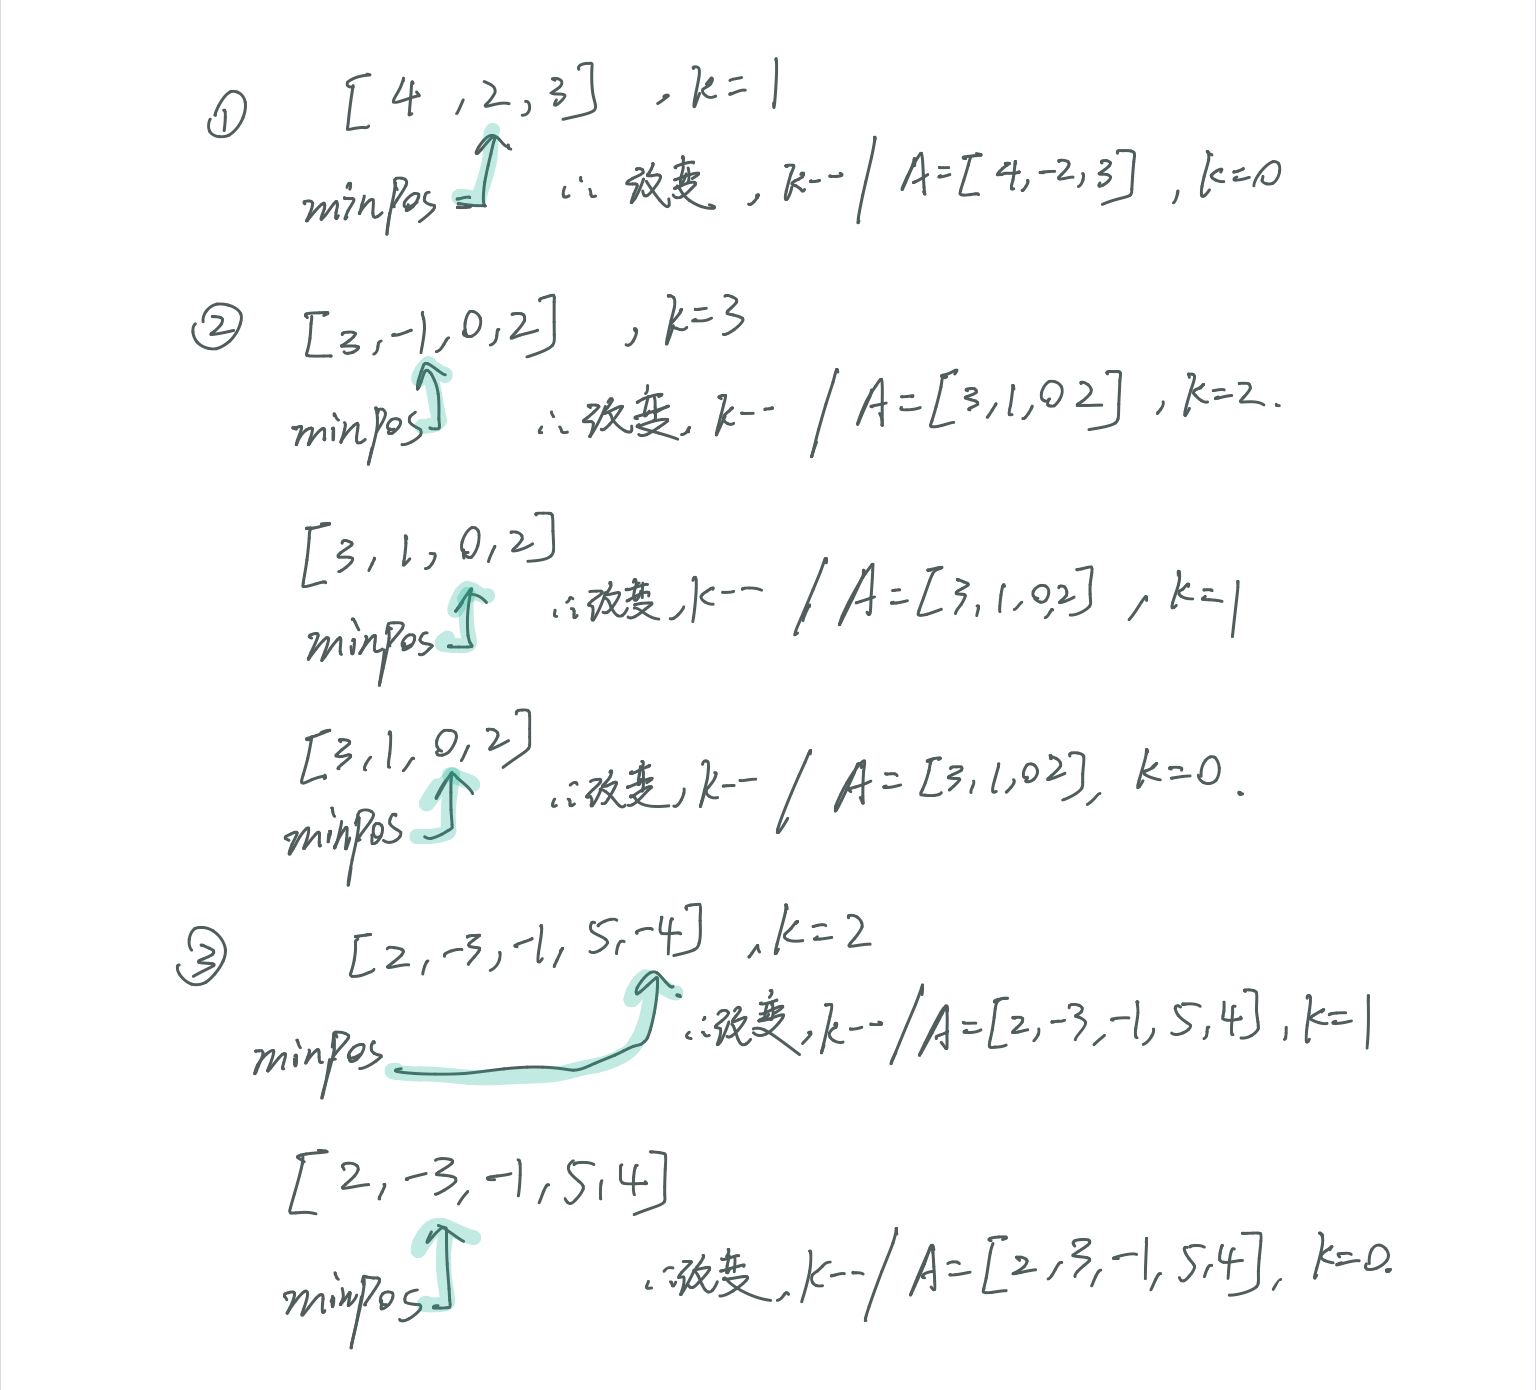 ① [4,2,3] , k=1
minPos ∴ 改变, k-- / A=[4,-2,3] , k=0
② [3,-1,0,2] , k=3
minPos ∴ 改变, k-- / A=[3,1,0 2] , k=2.
[3,1,0,2]
minPos ∴ 改变, k-- / A=[3,1,0,2] , k=1
[3,1,0,2]
minPos ∴ 改变, k-- / A=[3,1,0 2], k=0.
③ [2,-3,-1,5,-4] , k=2
minPos ∴ 改变, k-- / A=[2,-3,-1,5,4] , k=1
[2,-3,-1,5,4]
minPos ∴ 改变, k-- / A=[2,3,-1,5,4], k=0.